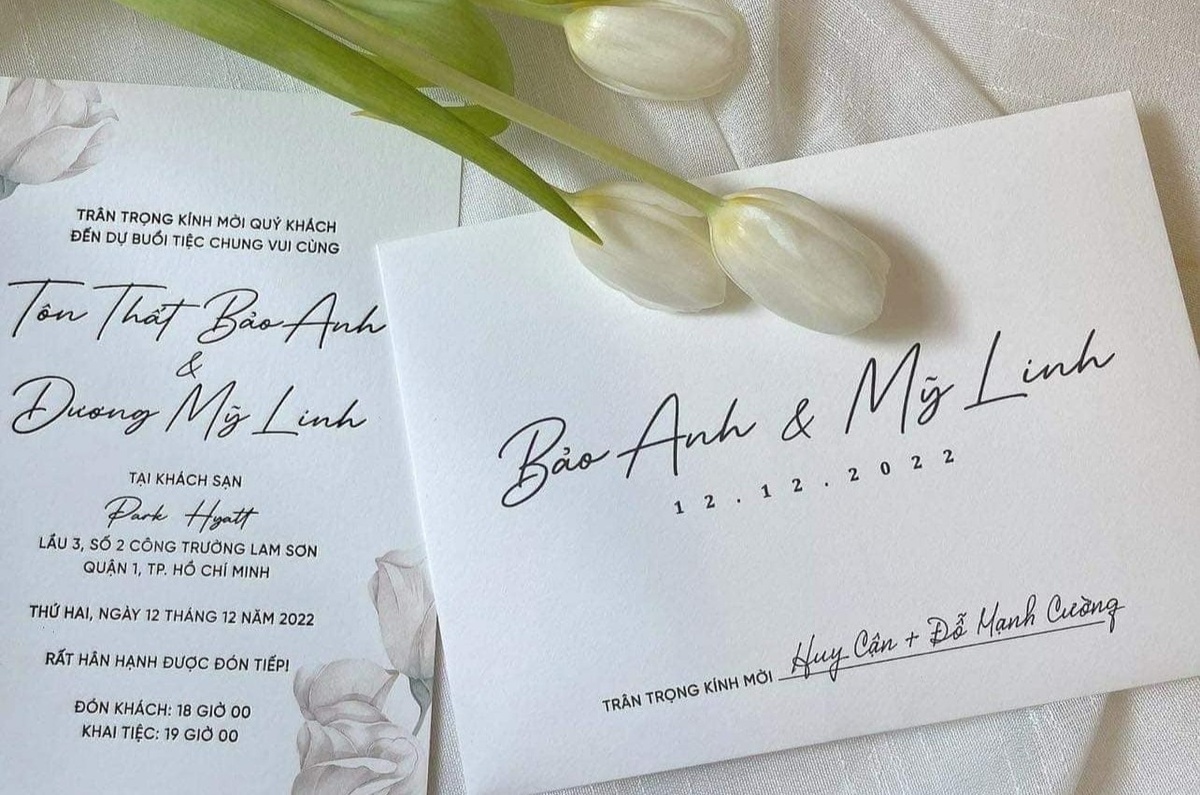 TRÂN TRỌNG KÍNH MỜI QUÝ KHÁCH
ĐẾN DỰ BUỔI TIỆC CHUNG VUI CÙNG
Tôn Thất Bảo Anh
&
Dương Mỹ Linh
TẠI KHÁCH SẠN
Park Hyatt
LẦU 3, SỐ 2 CÔNG TRƯỜNG LAM SƠN
QUẬN 1, TP. HỒ CHÍ MINH
THỨ HAI, NGÀY 12 THÁNG 12 NĂM 2022
RẤT HÂN HẠNH ĐƯỢC ĐÓN TIẾP!
ĐÓN KHÁCH: 18 GIỜ 00
KHAI TIỆC: 19 GIỜ 00
Bảo Anh & Mỹ Linh
12.12.2022
TRÂN TRỌNG KÍNH MỜI Huy Cận + Đỗ Mạnh Cường